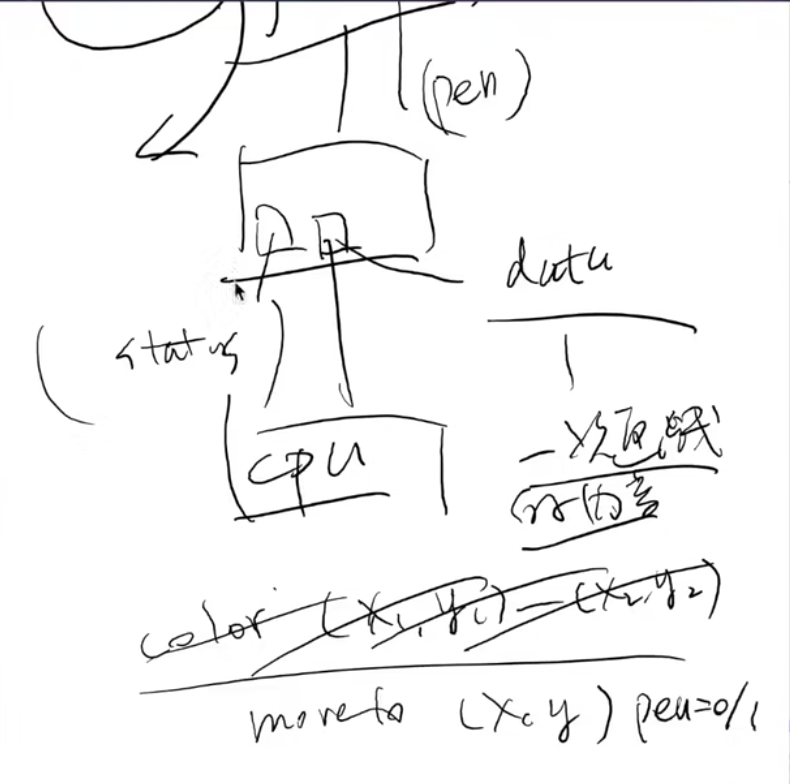 (pen)
data
(status)
CPU
一次
color (x1, y1) — (x2, y2)
moveto (x, y) pen=0/1